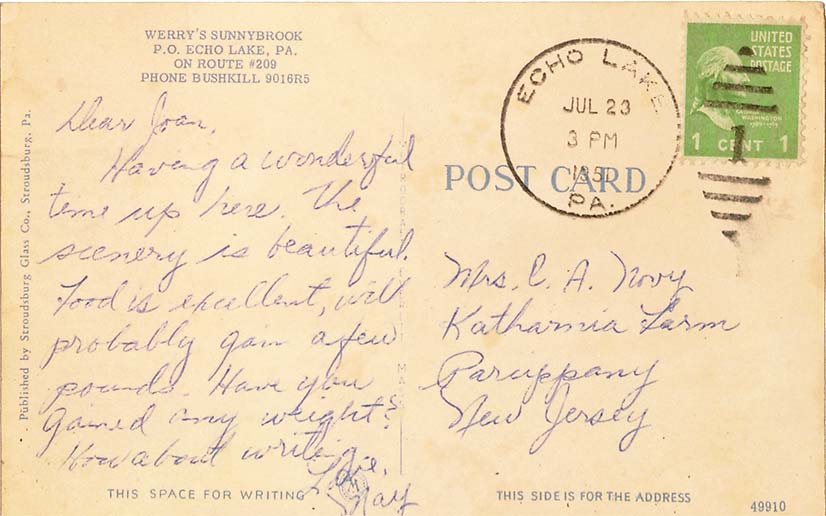 WERRY'S SUNNYBROOK
P.O. ECHO LAKE, PA.
ON ROUTE #209
PHONE BUSHKILL 9016R5
Dear Joan,
Having a wonderful
time up here. The
scenery is beautiful.
Food is excellent, will
probably gain a few
pounds. Have you
gained any weight?
How about writing.
Love,
THIS SPACE FOR WRITING
Published by Stroudsburg Glass Co., Stroudsburg, Pa.
POST CARD
ECHO LAKE
JUL 23
3 PM
1951
PA.
UNITED
STATES
POSTAGE
WASHINGTON
1 CENT 1
Mrs. C. A. Novy
Katharnia Farm
Parsippany
New Jersey
THIS SIDE IS FOR THE ADDRESS
49910